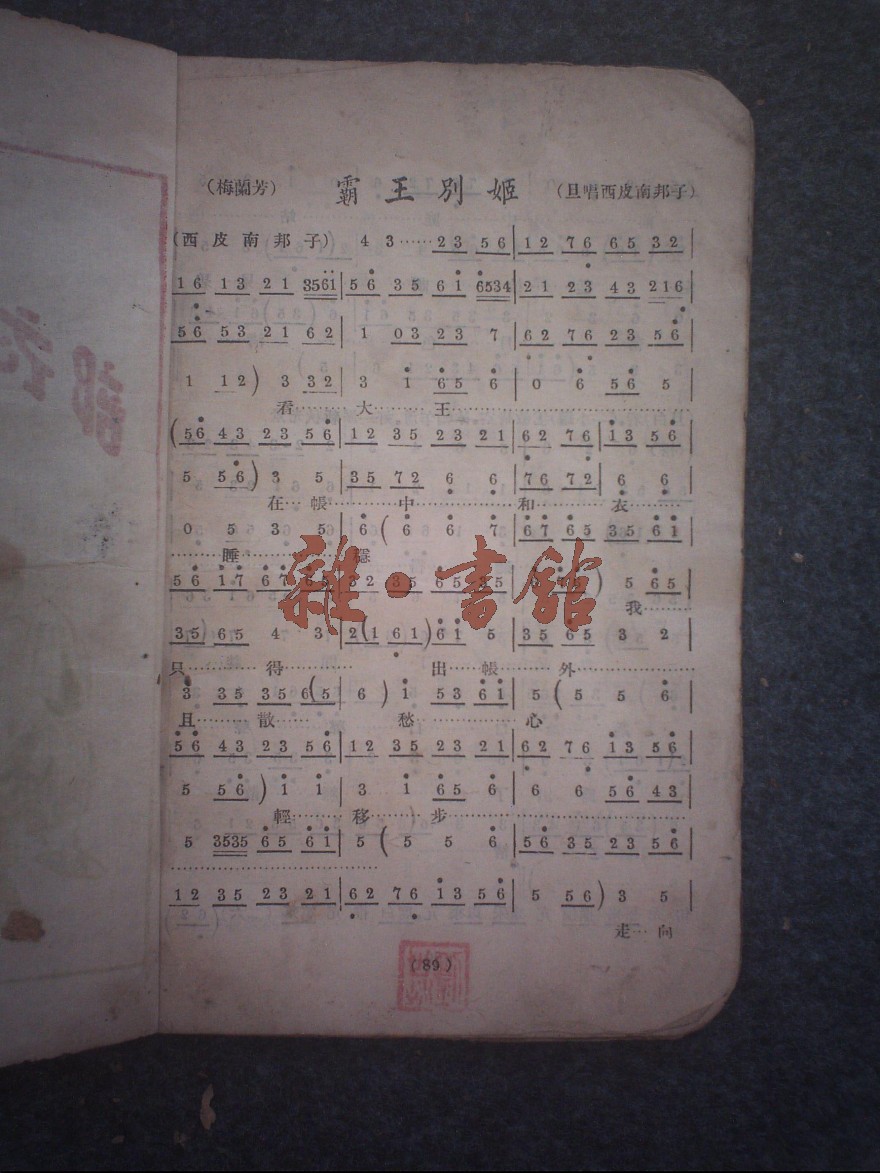 (梅蘭芳) 霸王別姬 (旦唱西皮南邦子)
(西皮南邦子) 4 3…… 2 3 5 6 | 1 2 7 6 6 5 3 2 |
1 6 1 3 2 1 3561 | 5 6 3 5 6 1 6534 | 2 1 2 3 4 3 216 |
5 6 5 3 2 1 6 2 | 1 0 3 2 3 7 | 6 2 7 6 2 3 5 6 |
1 1 2 ) 3 3 2 | 3 1 6 5 6 | 0 6 5 6 5
看……大……王……
( 5 6 4 3 2 3 5 6 | 1 2 3 5 2 3 2 1 | 6 2 7 6 | 1 3 5 6
5 5 6 ) 3 5 | 3 5 7 2 6 6 | 7 6 7 2 | 6 6
在…帳……中……和……衣…
0 5 3 5 | 6 ( 6 6 7 | 6 7 6 5 3 5 6 1
……睡……
5 6 1 7 6 7 6 5 3 5 6 5 3 5 ) 5 6 5
我……
3 5 ) 6 5 4 3 | 2 ( 1 6 1 ) 6 1 5 | 3 5 6 5 3 2
只……得……出……帳……外……
3 3 5 3 5 6 ( 5 | 6 ) 1 5 3 6 1 | 5 ( 5 5 6
且……散……愁……心
5 6 4 3 2 3 5 6 | 1 2 3 5 2 3 2 1 | 6 2 7 6 1 3 5 6
5 5 6 ) 1 1 | 3 1 6 5 6 | 6 6 5 6 4 3
輕……移……步……
5 3535 6 5 6 1 | 5 ( 5 5 6 | 5 6 3 5 2 3 5 6
1 2 3 5 2 3 2 1 | 6 2 7 6 1 3 5 6 | 5 5 6 ) 3 5
走…向
(89)
雜·書館